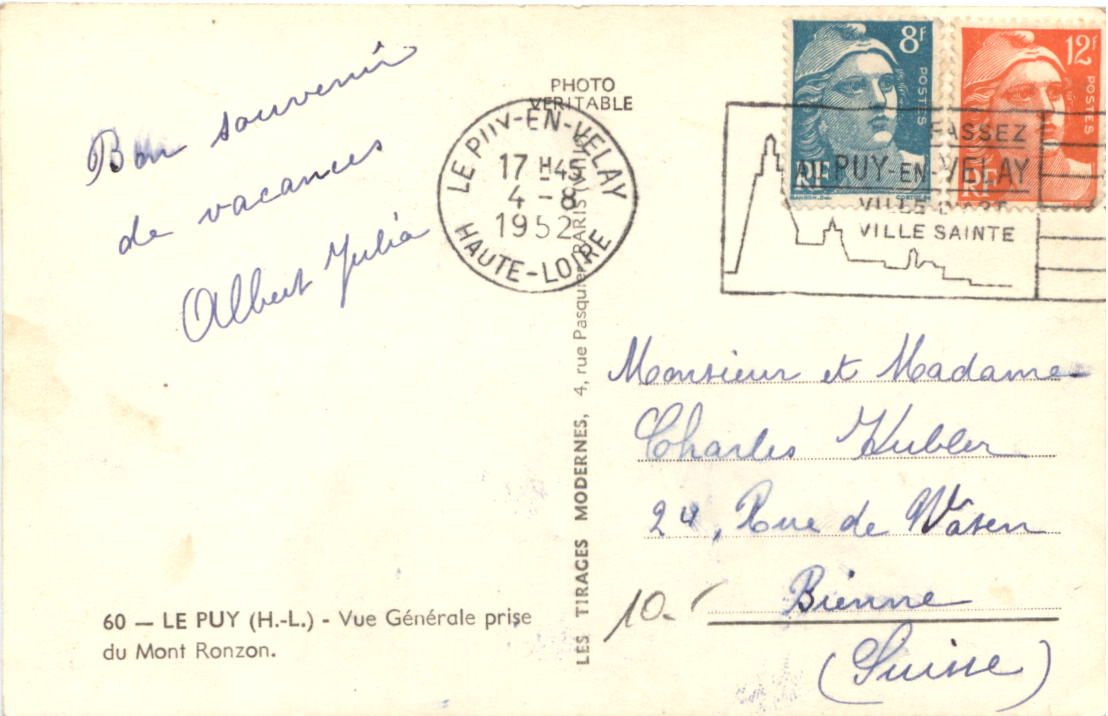 Bon souvenir
de vacances
Albert Julia
60 — LE PUY (H.-L.) - Vue Générale prise
du Mont Ronzon.
PHOTO
VERITABLE
LES TIRAGES MODERNES, 4, rue Pasquier, PARIS
LE PUY-EN-VELAY
17 H45
4 - 8
1952
HAUTE-LOIRE
8F
POSTES
RF
12F
POSTES
RF
PUY-EN-VELAY
VILLE D'ART
VILLE SAINTE
Monsieur et Madame
Charles Kubler
24, Rue de Wasen
Bienne
(Suisse)
10.-